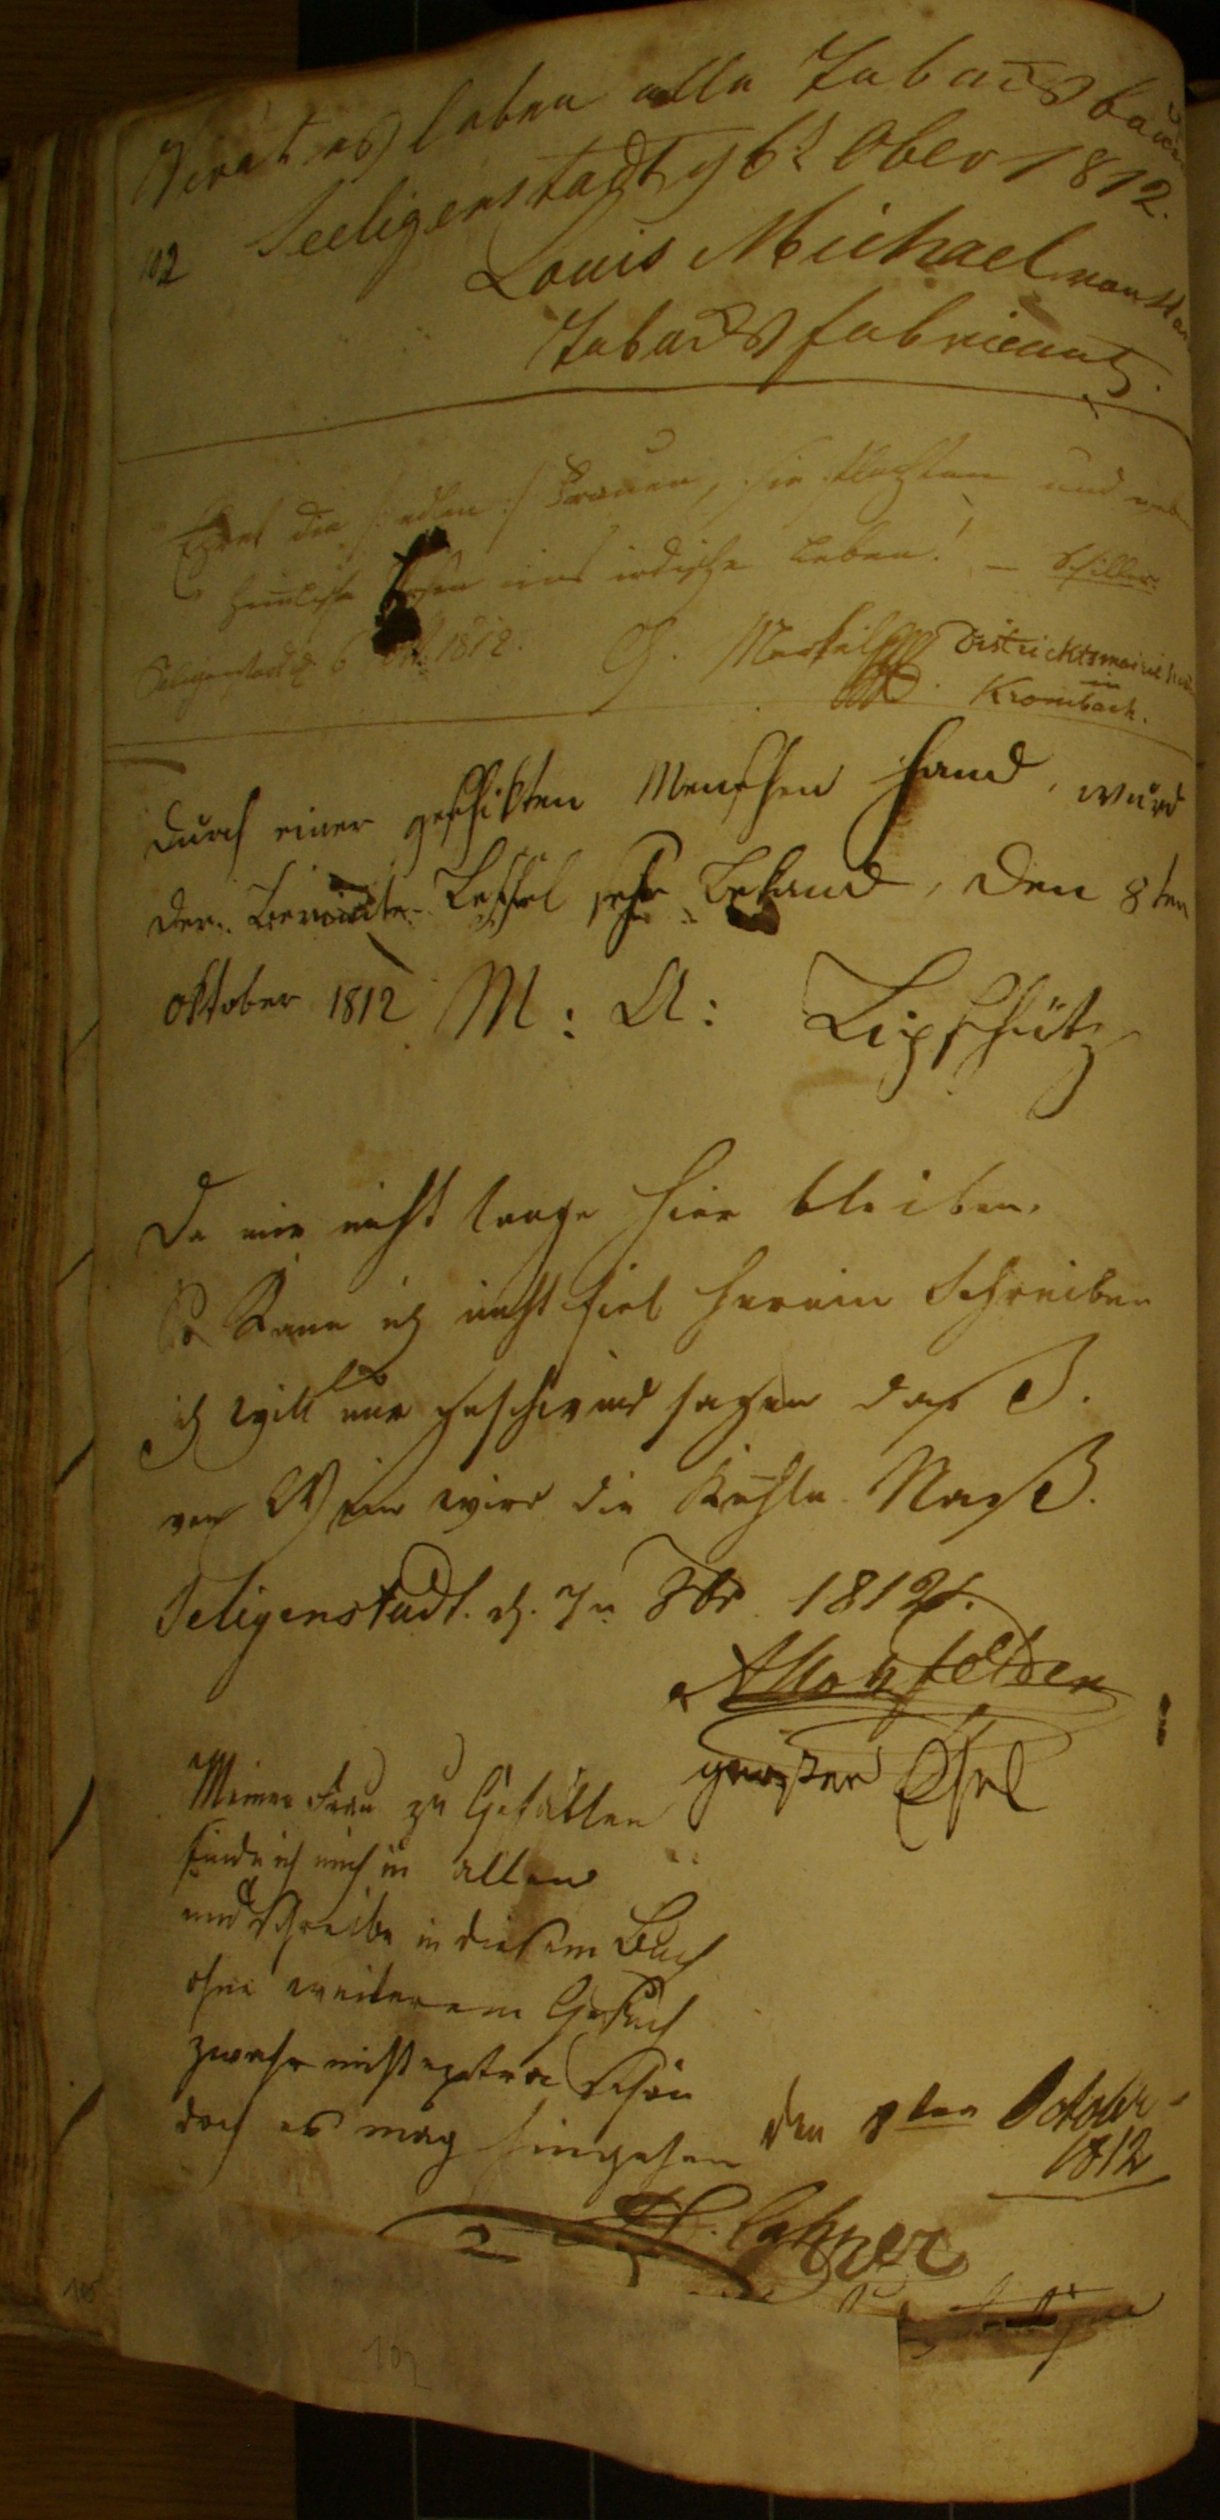 Vivat es leben alle Tabacksbau
Seeligenstadt d 6t 8ber 1812.
102
Louis Michael von
Tabacks fabricant
Ehret die /: edlen :/ Frauen, sie flechten und web
himlische Rosen ins irdische Leben! — Schiller.
Seligenstadt d 6 Okt. 1812. G. Merkel Districktsmairie
in
Krombach.
Durch einer geschikten Menschen Hand, wurd
der berümte Leffel sehr bekand, den 8ten
Oktober 1812 M: A: Lipschütz
Da mir nicht lange hier bleiben.
So kann ich nicht fiel herein Schreiben
ich will nur geschwind sagen daß.
von Wein wird die Kehle Naß.
Seligenstadt. d. 7n 8br 1812.
großer Esel
Meiner Frau zu Gefallen
finde ich mich in allen
und schreibe in diesem Buch
ohne weiterem Gesuch
zwahr nicht extra schön
doch es mag hingehen den 8ten October
1812
102